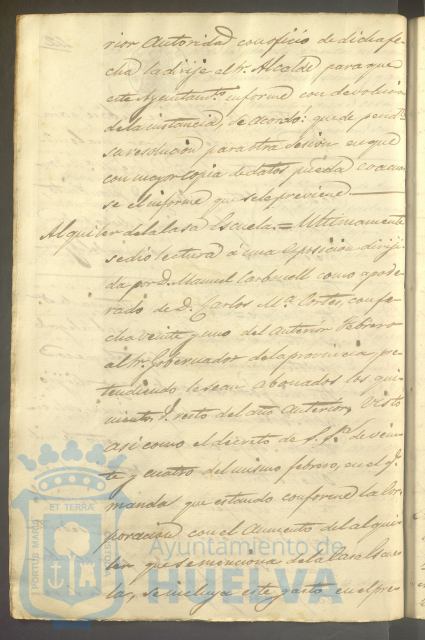 rior Autoridad con oficio de dicha fe-
cha la dirije al Sr. Alcalde, para que
este Ayuntamto. informe con devolucion
de la instancia, se acordó: quede pendte.
su resolucion para otra sesion en que
con mayor copia de datos pueda evacuar
se el informe que se le previene.
Alquiler de la Casa Escuela. = Ultimamente
se dio lectura á una esposicion dirigi-
da por D. Manuel Carbonell como apode-
rado de D. Carlos Ma. Cortes, con fe-
cha veinte y uno del anterior Febrero
al Sr. Gobernador de la provincia pre-
tendiendo le sean abonados los qui-
nientos r. resto del año anterior, visto
asi como el decreto de S. Sa. de vein-
te y cuatro del mismo febrero, en el q.
manda que estando conforme la Cor-
poracion con el aumento del alqui-
ler que se menciona de la Casa Escue-
la, se incluya este gasto en el pre-
PORTUS MARIS
ET TERRÆ
CUSTODIA
Ayuntamiento de
HUELVA